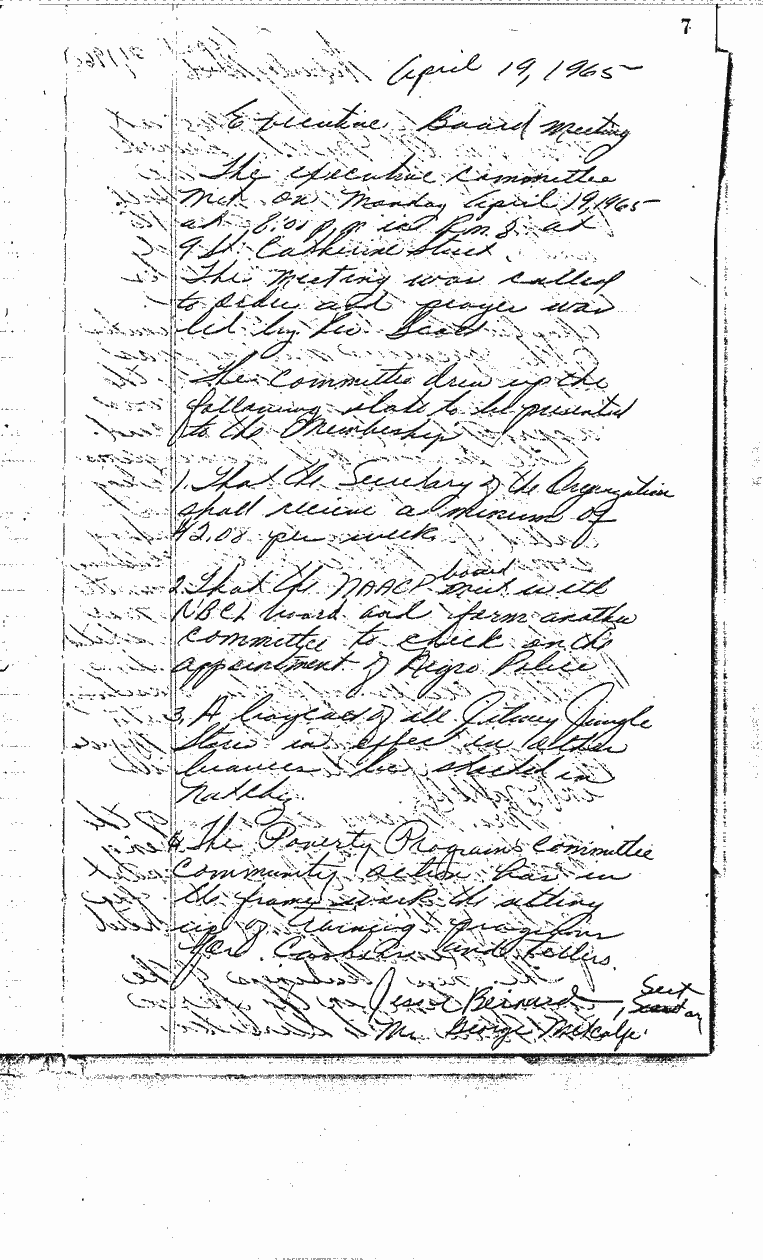 7
April 19, 1965
Executive Board Meeting
The executive committee
met on Monday April 19, 1965
at 8:00 p.m in Rm 8 at
9 St. Catherine Street.
The meeting was called
to order and prayer was
led by Rev. Scott
The Committee drew up the
following slate to be presented
to the Membership
1. That the Secretary of the Organization
shall receive a minimum of
$2.00 per week.
2. That the NAACP board meet with
board and form another
committee to check on the
appointment of Negro Police
3. A boycott of all Jitney Jungle
Stores in effect in other
be started in
Natchez.
4. The Poverty Programs committee
Community action has in
the frame work the setting
up of training programs
for Cashiers and tellers.
Jessie Bernard, Sect
Mr. George Metcalfe